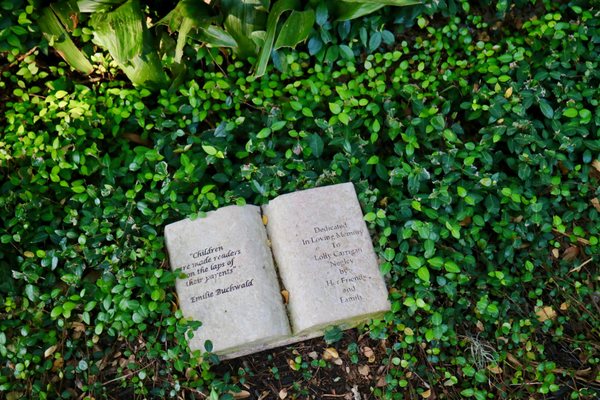 "Children
are made readers
on the laps of
their parents"
Emilie Buchwald
Dedicated
In Loving Memory
To
Lolly Carrigan
Negley
by
Her Friends
and
Family